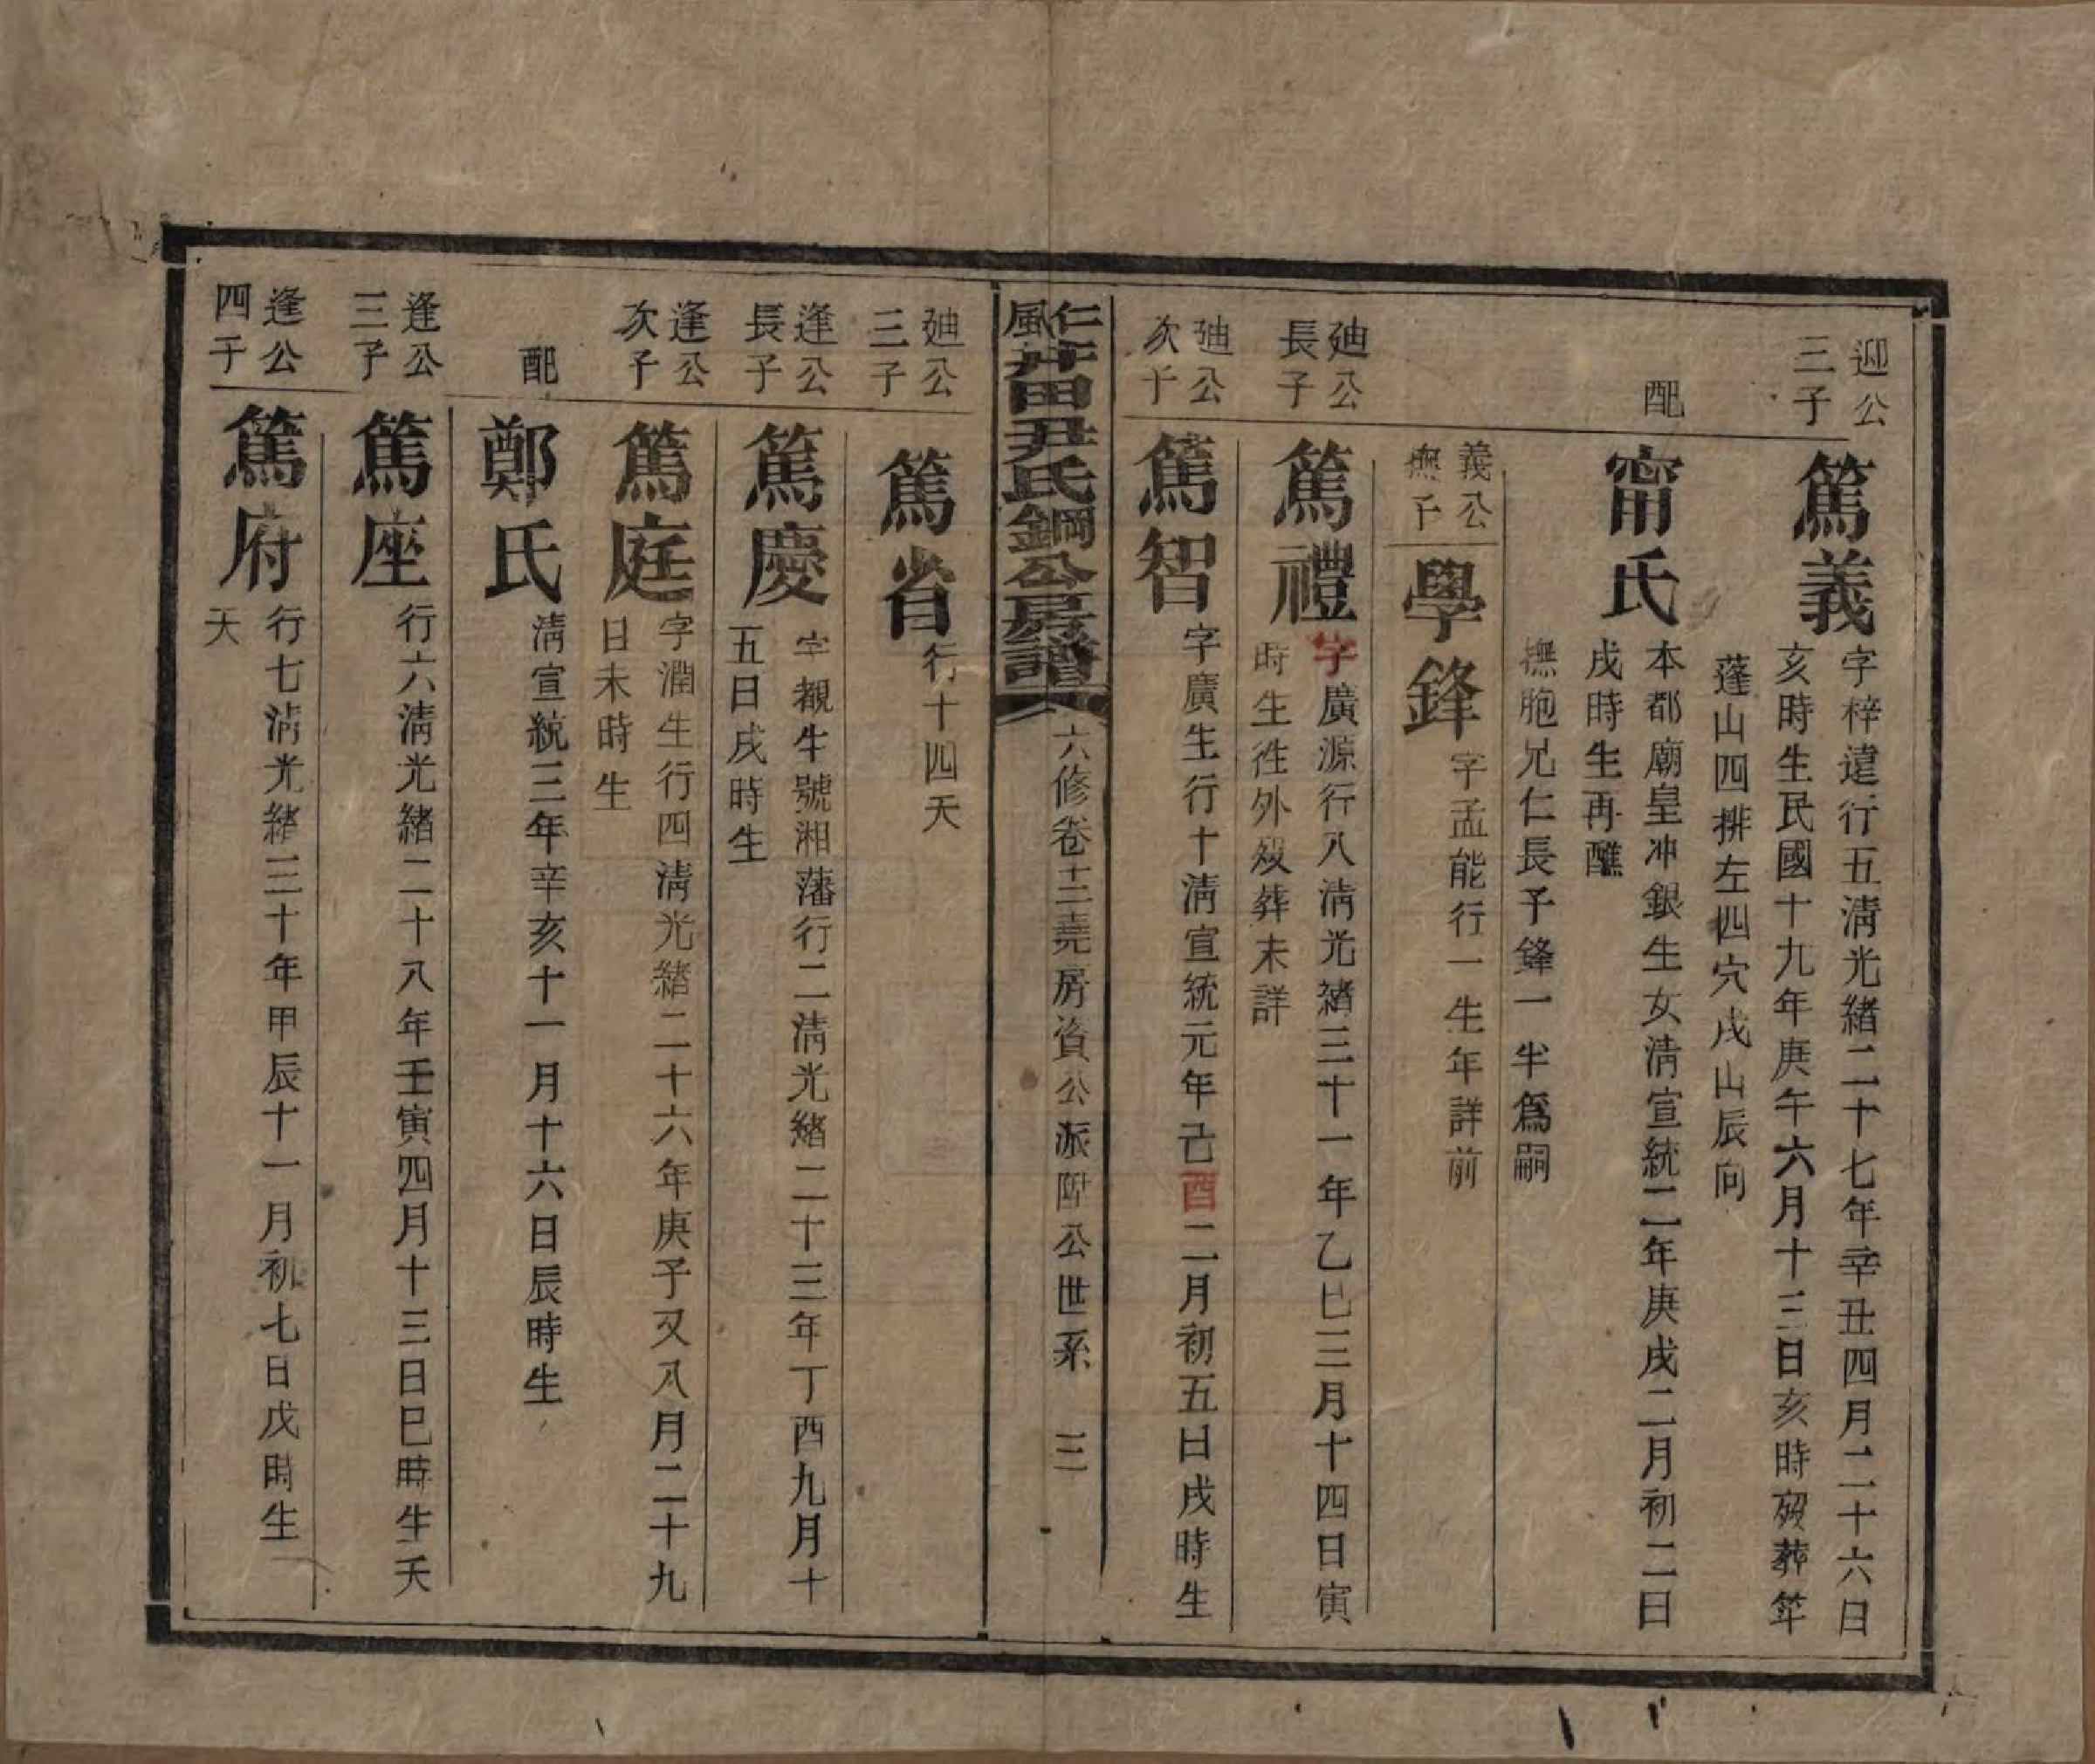 迎公
三子
篤義
字梓違行五淸光緒二十七年辛丑四月二十六日
亥時生民國十九年庚午六月十三日亥時歿葬筓
蓬山四排左四穴戌山辰向
配
甯氏
本都廟皇冲銀生女淸宣統二年庚戌二月初二日
戌時生再醮
撫胞兄仁長子鋒一半爲嗣
義公
撫子
學鋒
字孟能行一生年詳前
廸公
長子
篤禮
字廣源行八淸光緒三十一年乙巳三月十四日寅
時生往外歿葬未詳
廸公
次子
篤智
字廣生行十淸宣統元年己酉二月初五日戌時生
仁風井田尹氏鋼公房譜
六修卷十二堯房資公派陞公世系 三
廸公
三子
篤省
行十四夭
逢公
長子
篤慶
字觀生號湘藩行二淸光緒二十三年丁酉九月十
五日戌時生
逢公
次子
篤庭
字潤生行四淸光緒二十六年庚子又八月二十九
日未時生
配
鄭氏
淸宣統三年辛亥十一月十六日辰時生
逢公
三子
篤座
行六淸光緒二十八年壬寅四月十三日巳時生夭
逢公
四子
篤府
行七淸光緒三十年甲辰十一月初七日戌時生
夭